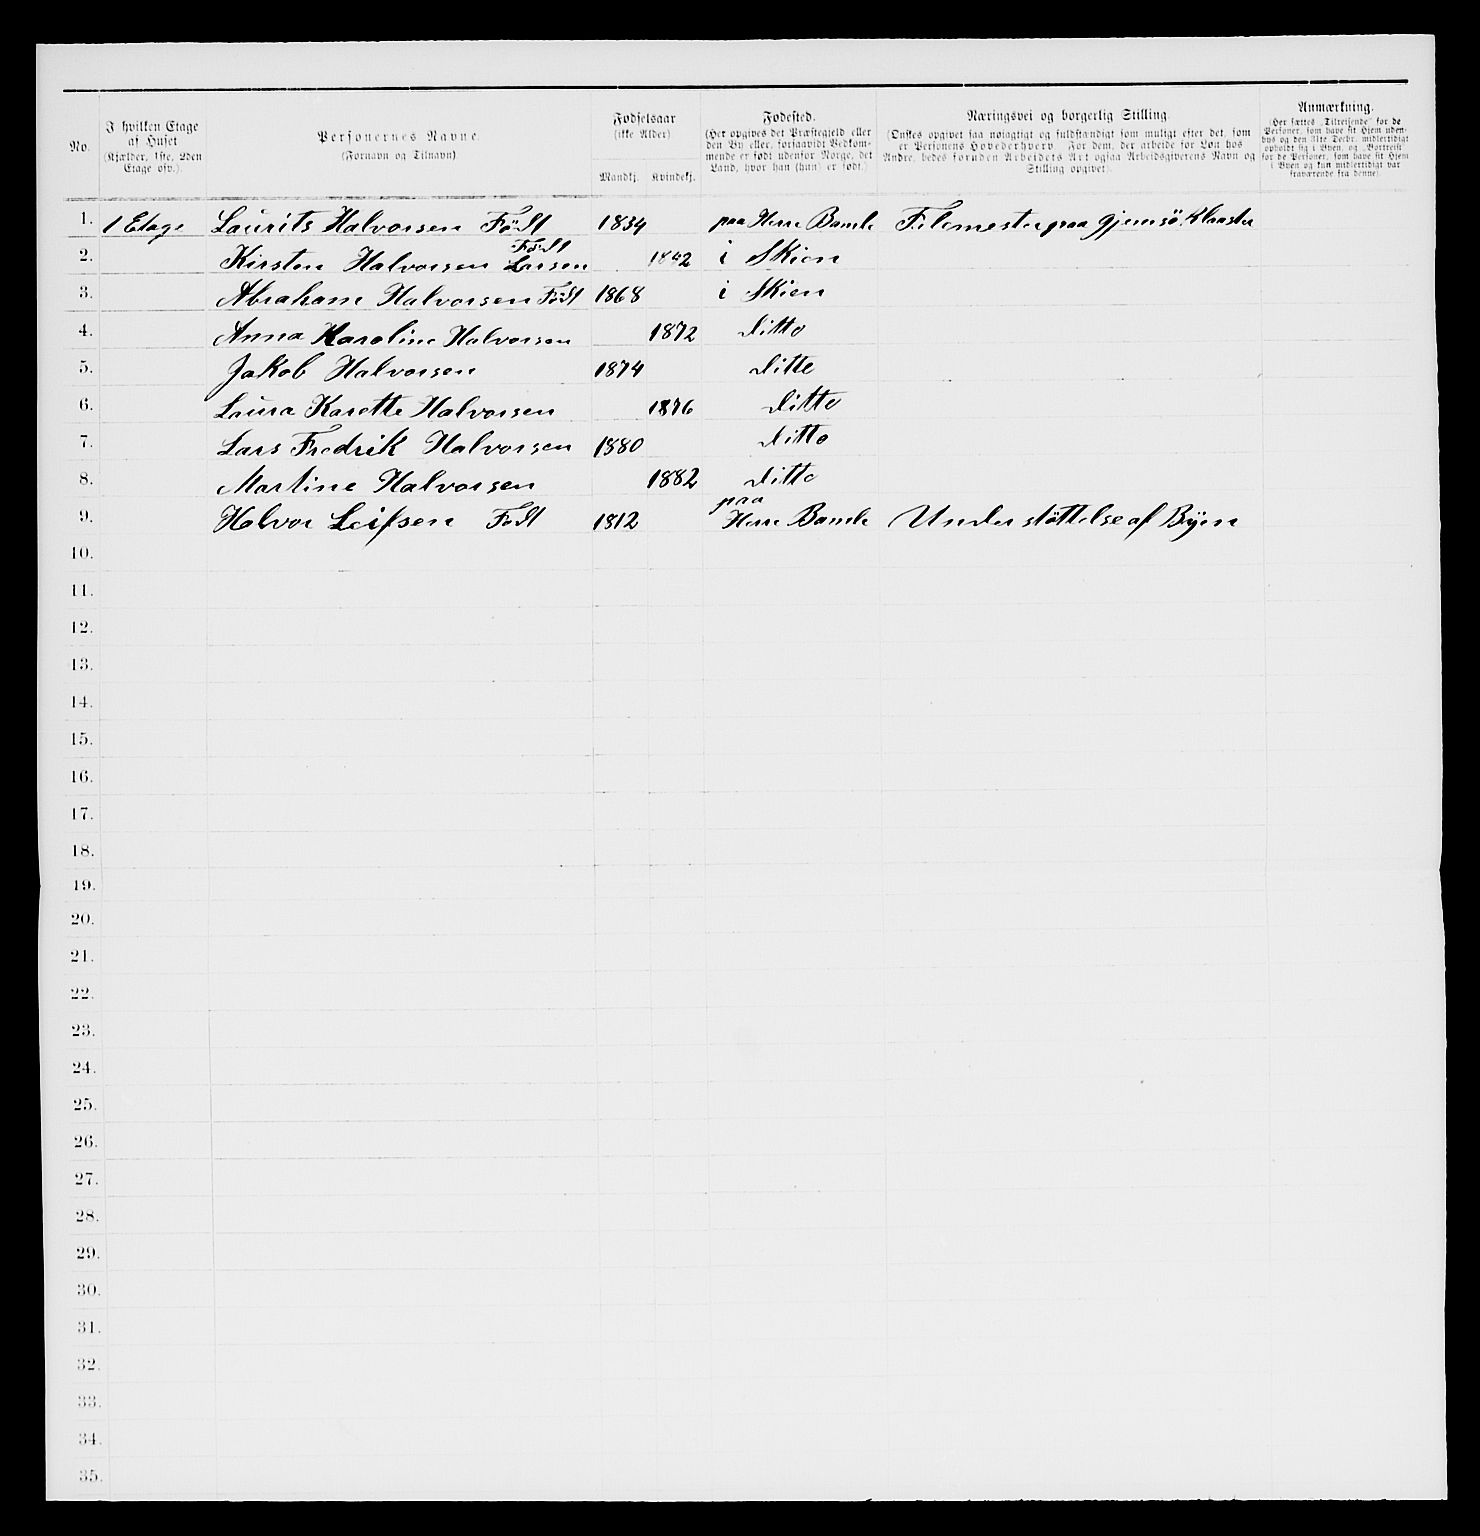 No.
I hvilken Etage
af Huset
(Kjælder, 1ste, 2den
Etage osv.).
Personernes Navne.
(Fornavn og Tilnavn).
Fødselsaar
(ikke Alder)
Mandkj. Kvindekj.
Fødested.
(Her opgives det Præstegjeld eller
den By eller, forsaavidt Vedkom-
mende er født udenfor Norge, det
Land, hvor han (hun) er født.)
Næringsvei og borgerlig Stilling.
(Ønskes opgivet saa nøiagtigt og fuldstændigt som muligt efter det, som
er Personens Hovederhverv. For dem, der arbeide for Løn hos
Andre, bedes foruden Arbeidets Art ogsaa Arbeidsgiverens Navn og
Stilling opgivet).
Anmærkning.
(Her sættes „Tilreisende" for de
Personer, som have sit Hjem uden-
bys og den 31te Decbr. midlertidigt
opholdt sig i Byen, og „Bortreist"
for de Personer, som have sit Hjem
i Byen og kun midlertidigt var
fraværende fra denne).
1. 1 Etage Laurits Halvorsen Født 1834 paa Herre Bamle Filemester paa Gjemsö Klaaster
2. Kirsten Halvorsen Født Larsen 1842 i Skien
3. Abraham Halvorsen Født 1868 i Skien
4. Anna Karoline Halvorsen 1872 Ditto
5. Jakob Halvorsen 1874 Ditto
6. Laura Karette Halvorsen 1876 Ditto
7. Lars Fredrik Halvorsen 1880 Ditto
8. Martine Halvorsen 1882 Ditto
9. Halvor Leifsen Født 1812 paa Herre Bamle Understöttelse af Byen
10.
11.
12.
13.
14.
15.
16.
17.
18.
19.
20.
21.
22.
23.
24.
25.
26.
27.
28.
29.
30.
31.
32.
33.
34.
35.